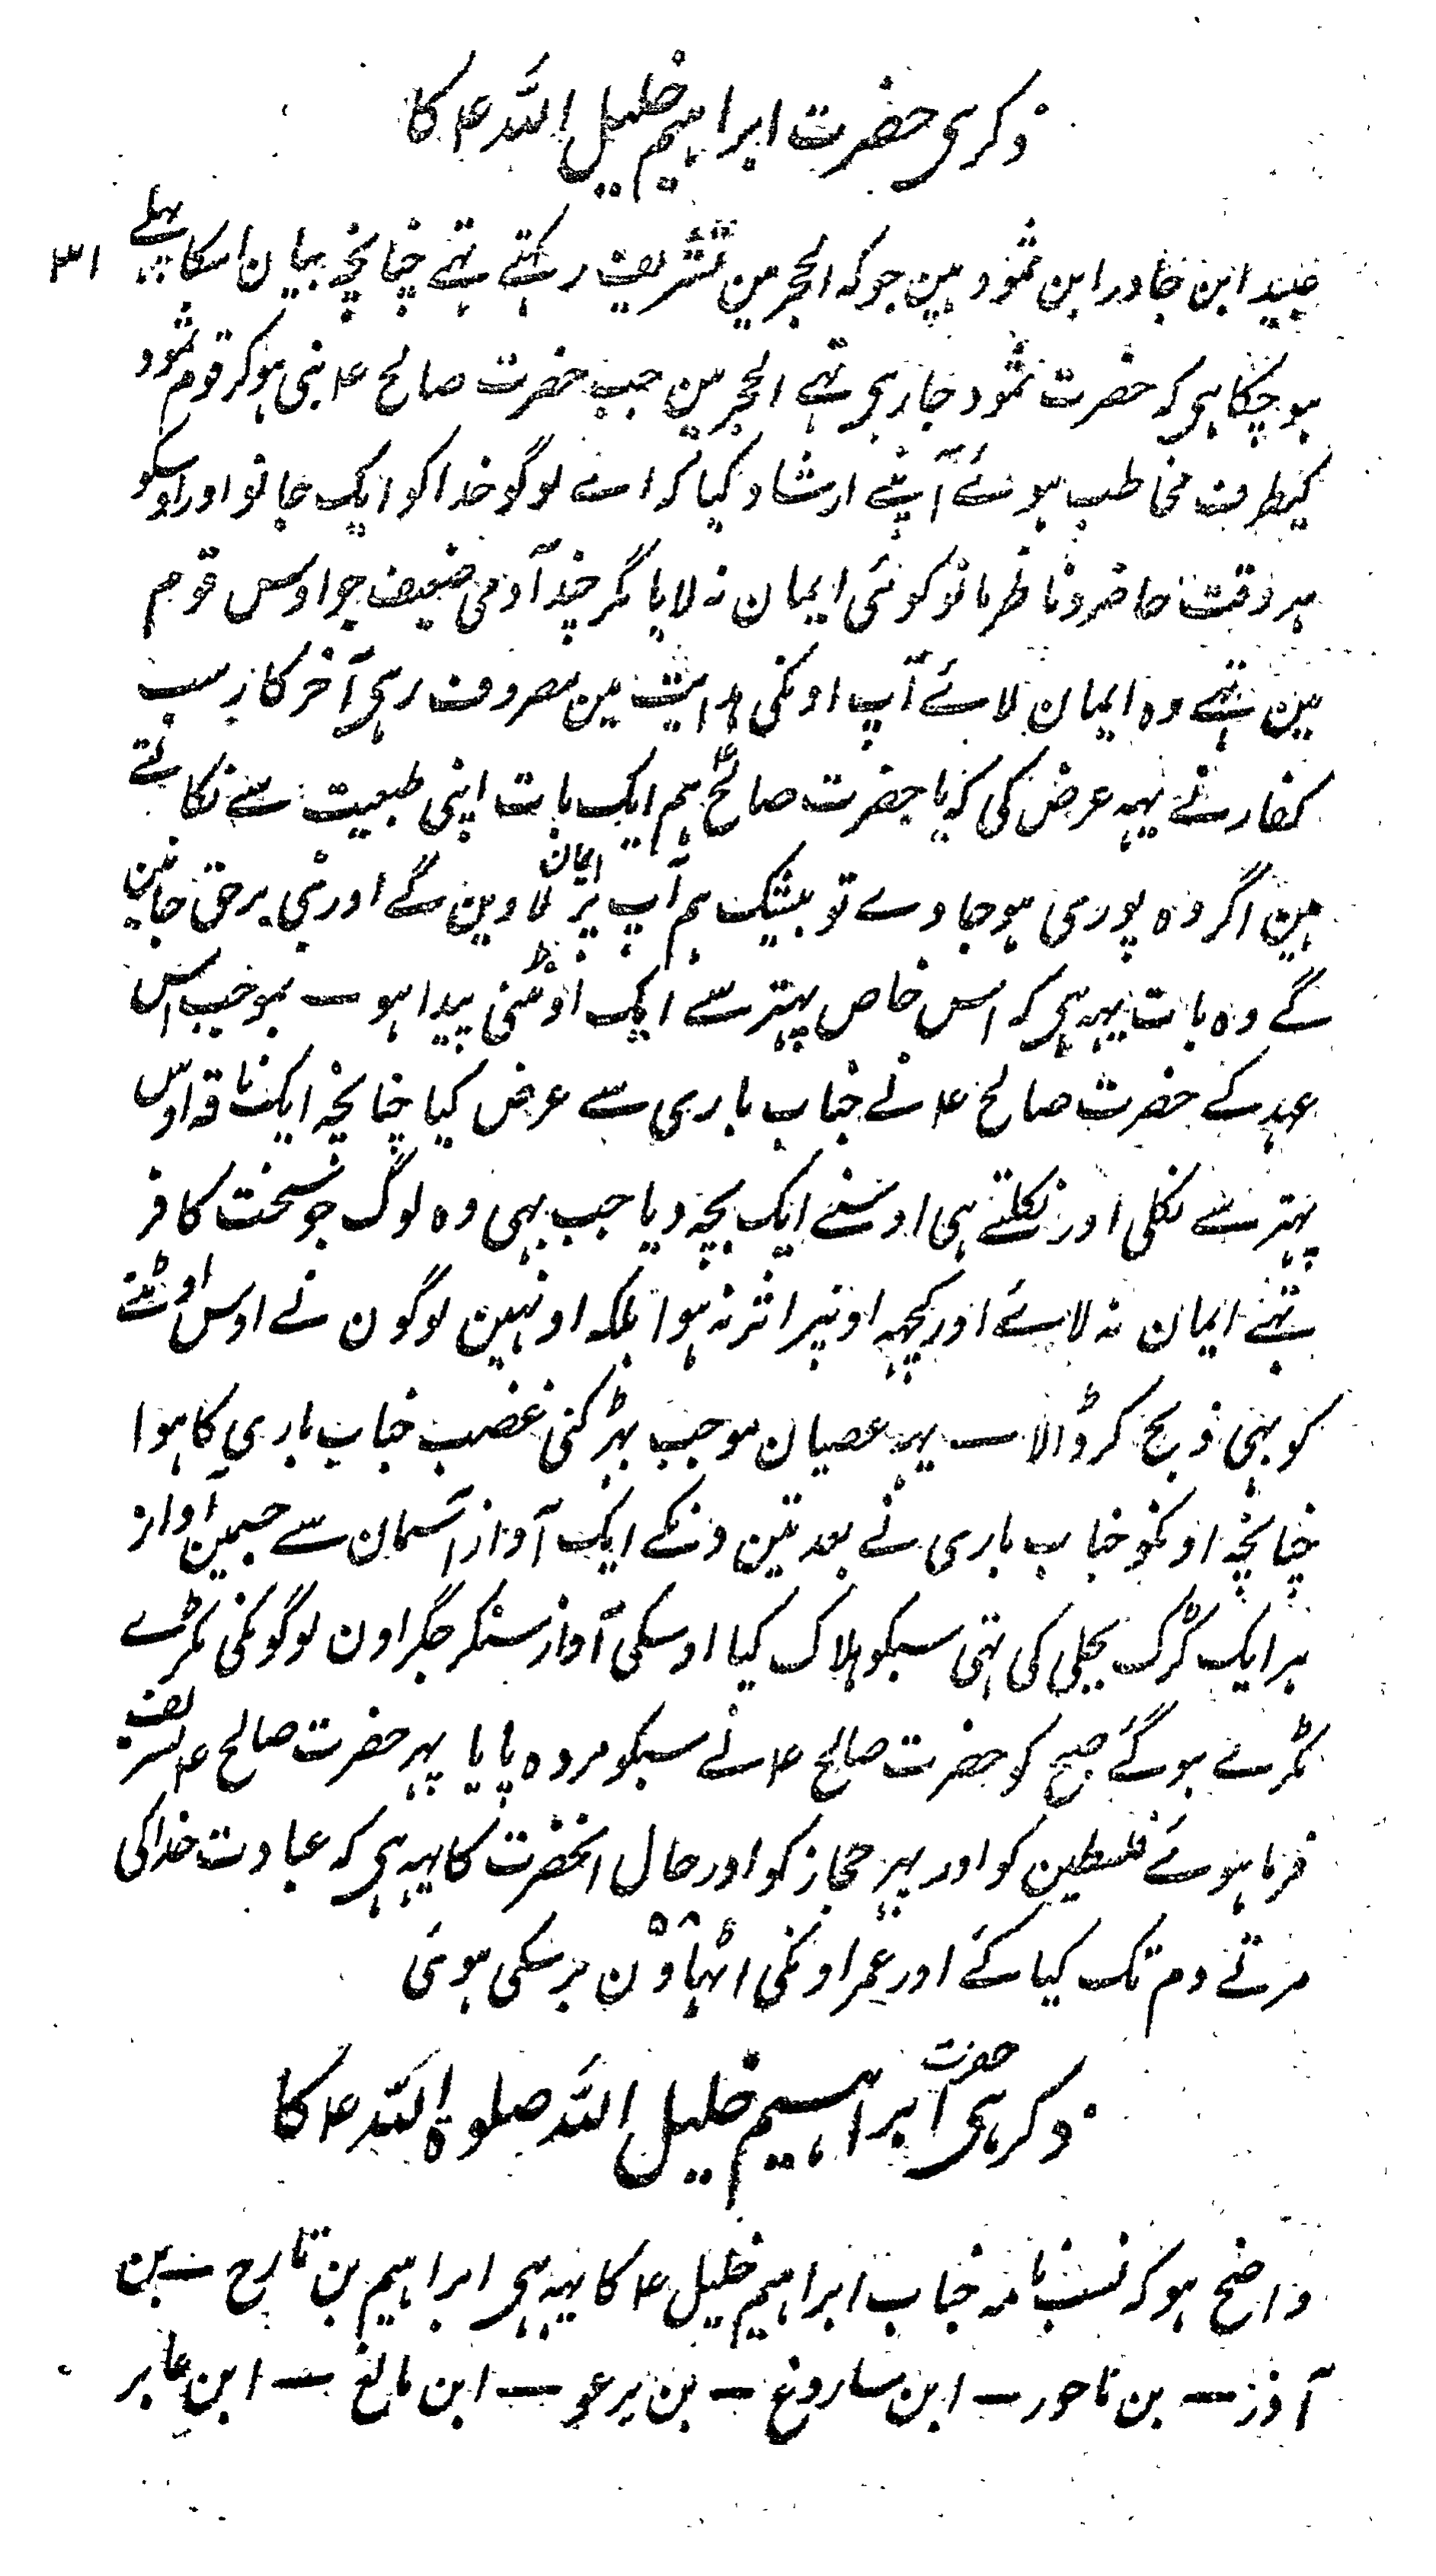 ذکر ہی حضرت ابراہیم خلیل اللہ ؑ کا
۳۱
عبید ابن جادر ابن ثمود ہین جوکہ الحجر مین تشریف رکہتے تہے چنانچہ بیان اسکا پہلے
ہو چکا ہی کہ حضرت ثمود جا رہی تہے الحجر مین جب حضرت صالح ؑ نبی ہوکر قوم ثمود
کیطرف مخاطب ہوئے آپنے ارشاد کیا کہ اے لوگو خدا کو ایک جانو اور اوسکو
ہر وقت حاضر و ناظر مانو کوئی ایمان نہ لایا مگر چند آدمی ضعیف جو اوس قوم
مین تہے وہ ایمان لائے آپ اونکی ہدایت مین مصروف رہی آخر کار سب
کفار نے یہہ عرض کی کہ یا حضرت صالحؑ ہم ایک بات اپنی طبعیت سے نکالتے
ہین اگر وہ پوری ہو جاوے تو بیشک ہم آپ پر ایمان لاوین گے اور نبی برحق جانین
گے وہ بات یہہ ہی کہ اس خاص پہتر سے ایک اونٹنی پیدا ہو ۔ بموجب اس
عہد کے حضرت صالح ؑ نے جناب باری سے عرض کیا چنانچہ ایک ناقہ اوس
پہتر سے نکلی اور نکلتے ہی اوسنے ایک بچہ دیا جب بہی وہ لوگ جو سخت کافر
تہے ایمان نہ لائے اور کچہہ اونپر اثر نہ ہوا بلکہ اونہین لوگون نے اوس اونٹنے
کو بہی ذبح کر ڈالا ۔ یہہ عصیان موجب بہڑکنی غضب جناب باری کا ہوا
چنانچہ اونکو جناب باری نے بعد تین دنکے ایک آواز آسمان سے جسمین آواز
ہر ایک کڑک بجلی کی تہی سبکو ہلاک کیا اوسکی آواز سنکر جگر اون لوگونکی ٹکڑے
ٹکڑے ہو گئے صبح کو حضرت صالح ؑ نے سبکو مردہ پایا پہر حضرت صالح ؑ تشریف
فرما ہوئے فلسطین کو اور پہر حجاز کو اور حال انحضرت کا یہہ ہی کہ عبادت خدا کی
مرتے دم تک کیا کئے اور عمر اونکی اٹہاون ۵۸ برسکی ہوئی
ذکر ہی حضرت ابراہیم خلیل اللہ صلوۃ اللہ ؑ کا
واضح ہو کہ نسب نامہ جناب ابراہیم خلیل ؑ کا یہہ ہی ابراہیم بن تارح ۔ بن
آذر ۔ بن ناحور ۔ ابن ساروغ ۔ بن یرعو ۔ ابن مالغ ۔ ابن عابر